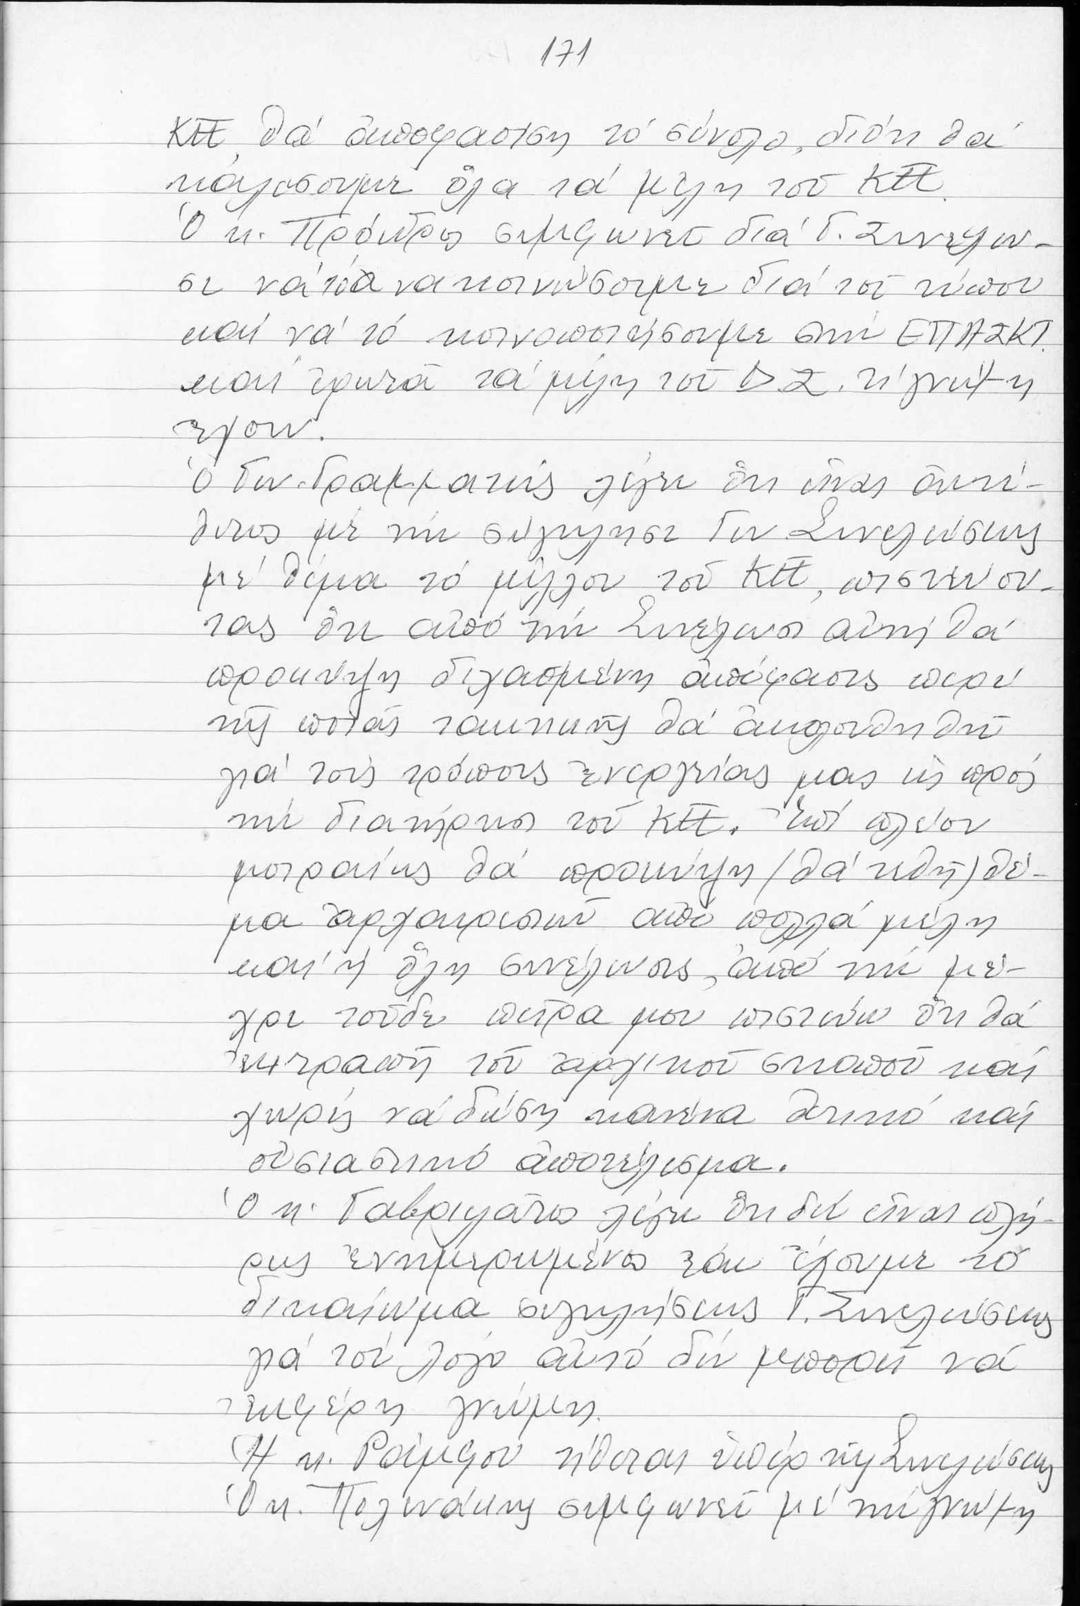 171
ΚΠ θά ἀποφασίση τό σύνολο, διότι θά
καλέσουμε ὅλα τά μέλη τοῦ ΚΠ.
Ὁ κ. Πρόεδρος συμφωνεῖ διά Γ. Συνέλευ-
σι νά τό ἀνακοινώσουμε διά τοῦ τύπου
καί νά τό κοινοποιήσουμε στήν ΕΠΑΣΚΤ.
καί ἐρωτᾶ τά μέλη τοῦ Δ.Σ. τί γνώμη
ἔχουν.
Ὁ Γεν. Γραμματεύς λέγει ὅτι εἶναι ἀντί-
θετος μέ τήν σύγκλησι Γεν Συνελεύσεως
μέ θέμα τό μέλλον τοῦ ΚΠ, πιστεύον-
τας ὅτι ἀπό τήν Συνέλευσι αὐτή θά
προκύψη διχασμένη ἀπόφασις περί
τῆς ποιᾶς τακτικῆς θά ἀκολουθηθῆ
γιά τούς τρόπους ἐνεργείας μας ὡς πρός
τήν διατήρησι τοῦ ΚΠ. Ἐπί πλέον
μοιραίως θά προκύψη (θά τεθῆ) θέ-
μα ἀρχαιρεσιῶν ἀπό πολλά μέλη
καί ἡ ὅλη συνέλευσις, ἀπό τήν μέ-
χρι τοῦδε πεῖρα μου πιστεύω ὅτι θά
ἐκτραπῆ τοῦ ἀρχικοῦ σκοποῦ καί
χωρίς νά δώση κανένα θετικό καί
οὐσιαστικό ἀποτέλεσμα.
Ὁ κ. Γαβριλᾶτος λέγει ὅτι δέν εἶναι πλή-
ρως ἐνημερωμένος ἐάν ἔχουμε τό
δικαίωμα συγκλήσεως Γ. Συνελεύσεως
γιά τόν λόγο αὐτό δέν μπορεῖ νά
ἐκφέρη γνώμη.
Ἡ κ. Ράμφου τίθεται ὑπέρ τῆς Συνελεύσεως
Ὁ κ. συμφωνεῖ μέ τήν γνώμη